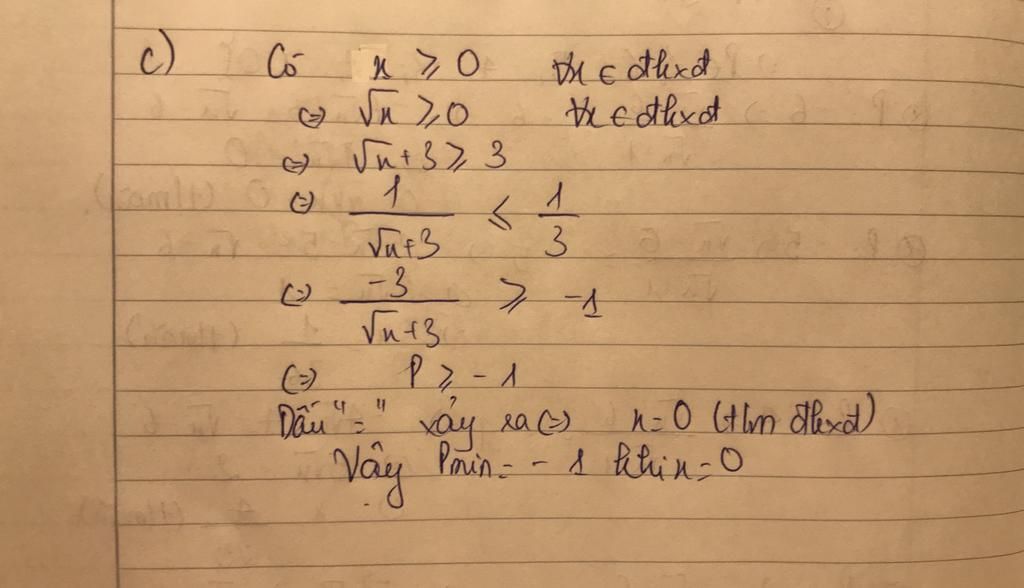 c) Có x ⩾ 0 ∀x ∈ đkxđ
(=) √x ⩾ 0 ∀x ∈ đkxđ
(=) √x + 3 ⩾ 3
(=) 1/(√x + 3) ⩽ 1/3
(=) -3/(√x + 3) ⩾ -1
(=) P ⩾ -1
Dấu "=" xảy ra (=) x = 0 (tlm đkxđ)
Vậy Pmin = -1 khi x = 0